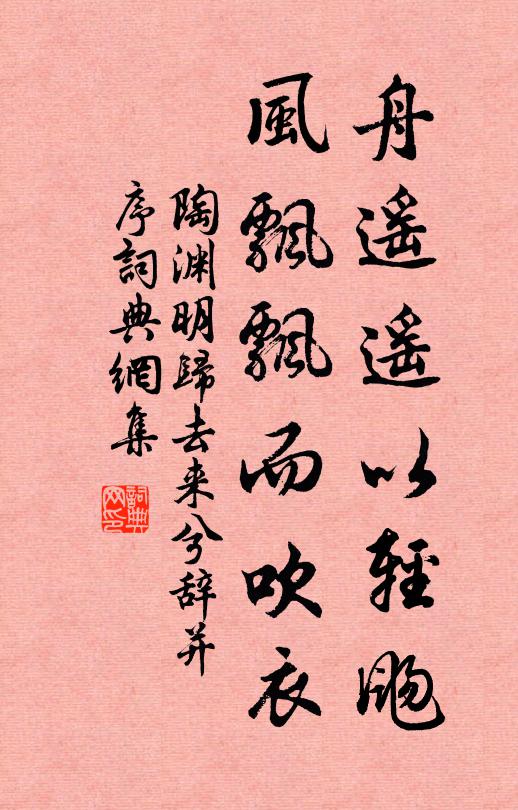 舟遥遥以輕颺
風飄飄而吹衣
陶渊明歸去来兮辞并
序詞典網集
詞典网印